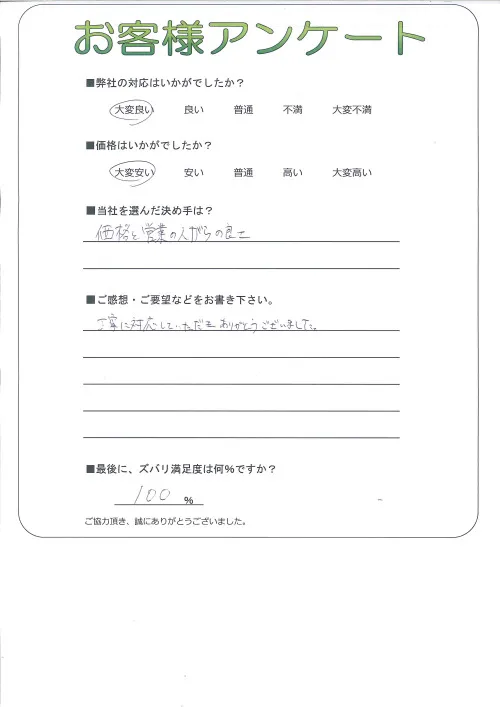 お客様アンケート
■弊社の対応はいかがでしたか？
大変良い 良い 普通 不満 大変不満
■価格はいかがでしたか？
大変安い 安い 普通 高い 大変高い
■当社を選んだ決め手は？
価格と営業の人がらの良さ
■ご感想・ご要望などをお書き下さい。
丁寧に対応していただきありがとうございました。
■最後に、ズバリ満足度は何％ですか？
100 %
ご協力頂き、誠にありがとうございました。